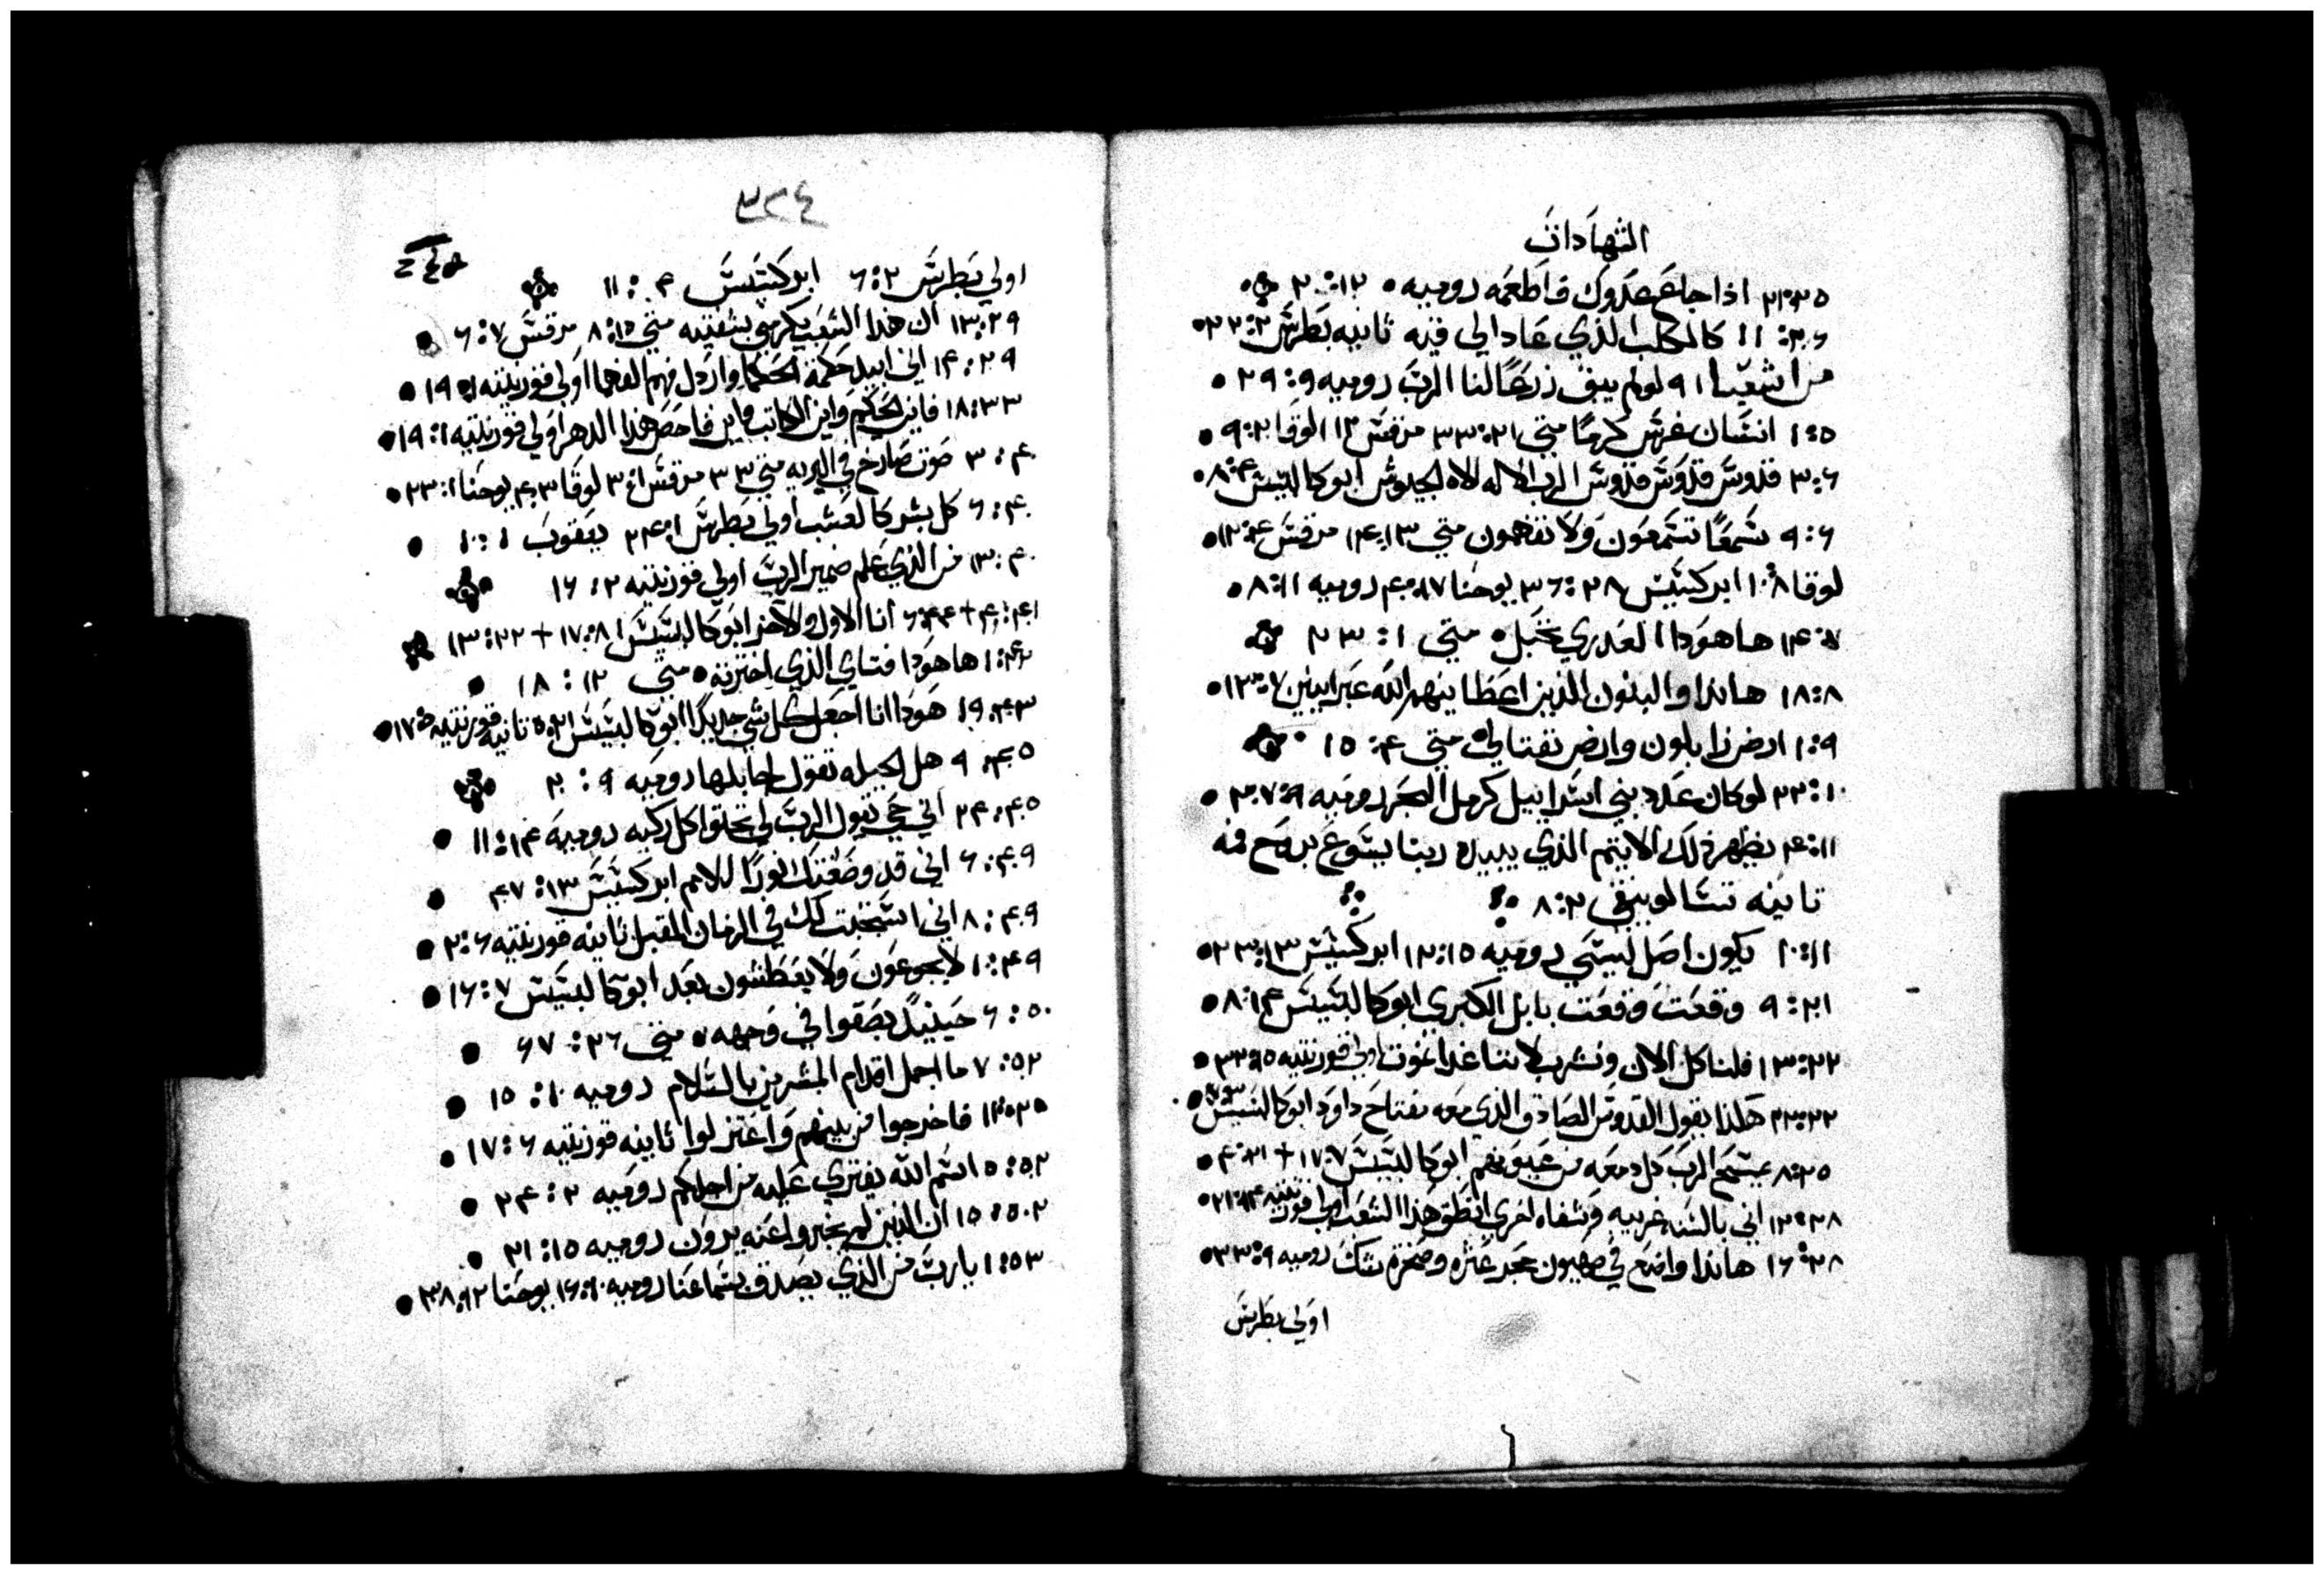 الشهادات
٢١:٢٥ اذا جاع عدوك فاطعمه روميه ١٢: ٢٠
١١:٢٦ كالكلب الذي عاد الي قيه ثانيه بطرس ٢:٢٢
من اشعيا ٩:١ لو لم يبق زرعًا لنا الرب روميه ٩: ٢٩
١:٥ انسان غرس كرمًا متي ٢١: ٣٣ مرقس ١٢:١ لوقا ٩:٢٠
٣:٦ قدوس قدوس قدوس الرب الاله الاه الجيوش ابوكالبسيس ٤: ٨
٩:٦ سمعًا تسمعون ولا تفهمون متي ١٣: ١٤ مرقس ٤: ١٢
لوقا ٨: ١٠ ابركسيس ٢٨: ٢٦ يوحنا ١٢: ٤٠ روميه ١١: ٨
١٤:٧ ها هودا العدري تحبل متي ١: ٢٣
١٨:٨ هاندا والبنون الذين اعطانيهم الله عبرانيين ٢: ١٣
١:٩ ارض زابلون وارض نفتالي متي ٤: ١٥
٢٢:١٠ لو كان عدد بني اسراييل كرمل البحر روميه ٩: ٢٧
٤:١١ يظهر ذلك الاثيم الذي يبيده ربنا يسوع بروح فمه
ثانيه تسالونيقي ٢: ٨
١٠:١١ يكون اصل ليسي روميه ١٥: ١٢ ابركسيس ١٣: ٢٣
٩:٢١ وقعت وقعت بابل الكبري ابوكالبسيس ١٤: ٨
١٣:٢٢ فلناكل الان ونشرب لاننا غدا نموت اولي قورنتيه ١٥: ٣٢
٢٢:٢٢ هكذا يقول القدوس الصادق الذي معه مفتاح داود ابوكالبسيس ٣: ٧
٨:٢٥ يمسح الرب كل دمعه من عيونهم ابوكالبسيس ٧: ١٧ + ٢١: ٤
١٢:٢٨ اني بالسنه غريبه وشفاه اخري انطق هذا الشعب اولي قورنتيه ١٤: ٢١
١٦:٢٨ هاندا واضع في صهيون حجر عثره وصخرة شك روميه ٩: ٣٣
اولي بطرس
٣٢٤
اولي بطرس ٢: ٦ ابركسيس ٤: ١١
١٣:٢٩ ان هذا الشعب يكرمني بشفتيه متي ١٥: ٨ مرقس ٧: ٦
١٤:٢٩ اني ابيد حكمة الحكما وارذل فهم الفهما اولي قورنتيه ١: ١٩
١٨:٣٣ فاين الحكيم واين الكاتب واين فاحص هذا الدهر اولي قورنتيه ١: ١٩
٣:٤٠ صوت صارخ في البريه متي ٣: ٣ مرقس ١: ٣ لوقا ٣: ٤ يوحنا ١: ٢٣
٦:٤٠ كل بشر كالعشب اولي بطرس ١: ٢٤ يعقوب ١: ١٠
١٣:٤٠ من الذي علم ضمير الرب اولي قورنتيه ٢: ١٦
٤:٤١ + ٦:٤٤ انا الاول والاخر ابوكالبسيس ١: ٨، ١٧ + ٢٢: ١٣
١:٤٢ ها هودا فتاي الذي اخترته متي ١٢: ١٨
١٩:٤٣ هودا انا اجعل كل شي جديدًا ابوكالبسيس ٢١: ٥ ثانيه قورنتيه ٥: ١٧
٩:٤٥ هل الجبله تقول لجابلها روميه ٩: ٢٠
٢٤:٤٥ اني حي يقول الرب لي تحثوا كل ركبه روميه ١٤: ١١
٦:٤٩ اني قد وضعتك نورًا للامم ابركسيس ١٣: ٤٧
٨:٤٩ اني استجبت لك في الزمان المقبل ثانيه قورنتيه ٦: ٢
١٠:٤٩ لا يجوعون ولا يعطشون بعد ابوكالبسيس ٧: ١٦
٦:٥٠ حينيدٍ بصقوا في وجهه متي ٢٦: ٦٧
٧:٥٢ ما اجمل اقدام المبشرين بالسلام روميه ١٠: ١٥
١١:٥٢ فاخرجوا من بينهم واعتزلوا ثانيه قورنتيه ٦: ١٧
٥:٥٢ اسم الله يفتري عليه من اجلكم روميه ٢: ٢٤
١٥:٥٢ ان الذين لم يخبروا عنه يرون روميه ١٥: ٢١
١:٥٣ يا رب من الذي يصدق بسماعنا روميه ١٠: ١٦ يوحنا ١٢: ٣٨